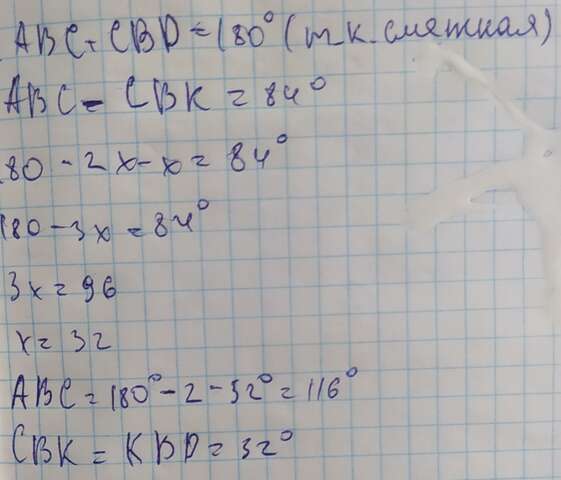 ABC + CBD = 180° (т.к. смежная)
ABC - CBK = 84°
80 - 2x - x = 84°
180 - 3x = 84°
3x = 96
x = 32
ABC = 180° - 2 - 32° = 116°
CBK = KBD = 32°